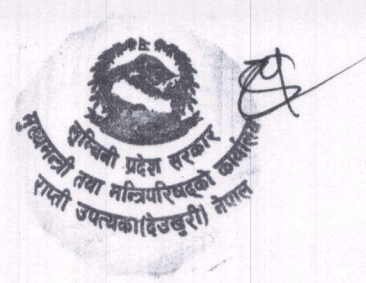 लुम्बिनी प्रदेश सरकार
मुख्यमन्त्री तथा मन्त्रिपरिषद्को कार्यालय
राप्ती उपत्यका(देउखुरी) नेपाल